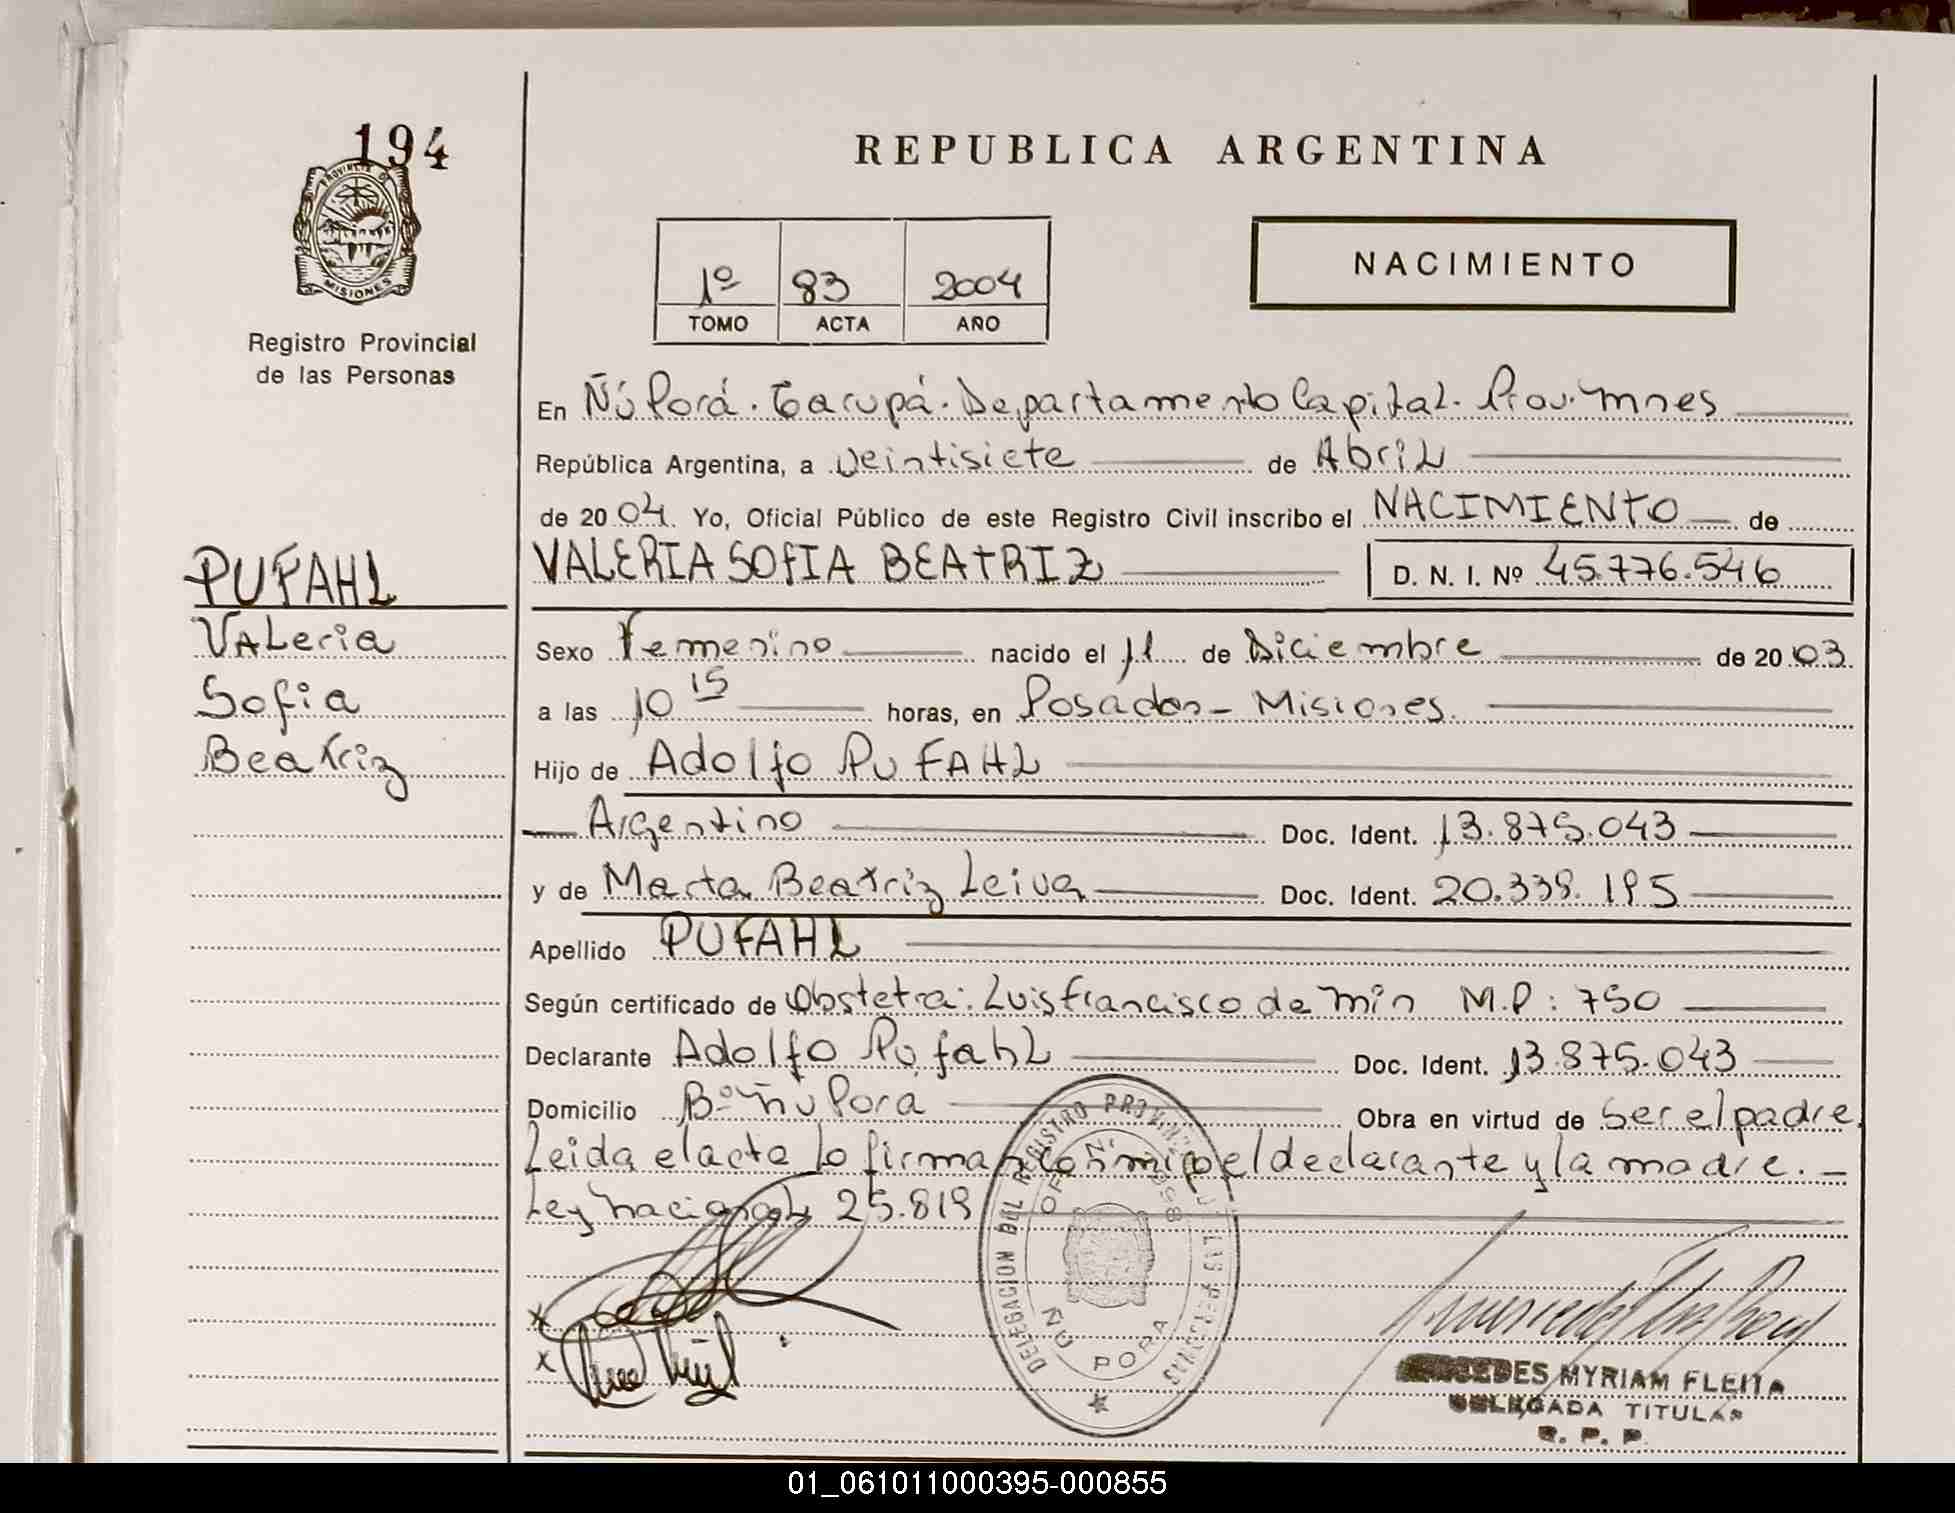 194
PROVINCIA DE
MISIONES
Registro Provincial
de las Personas
PUFAHL
Valeria
Sofia
Beatriz
REPUBLICA ARGENTINA
NACIMIENTO
1º 83 2004
TOMO ACTA AÑO
En Ñú Porá. Garupá. Departamento Capital. Prov. Mnes
República Argentina, a veintisiete de Abril
de 2004. Yo, Oficial Público de este Registro Civil inscribo el NACIMIENTO de
VALERIA SOFIA BEATRIZ D. N. I. Nº 45.776.546
Sexo Femenino nacido el 11 de Diciembre de 2003.
a las 10 15 horas, en Posadas - Misiones.
Hijo de Adolfo PUFAHL
Argentino Doc. Ident. 13.875.043
y de Marta Beatriz Leiva Doc. Ident. 20.338.195
Apellido PUFAHL
Según certificado de Obstetra: Luis Francisco de Min M.P: 750
Declarante Adolfo Pufahl Doc. Ident. 13.875.043
Domicilio Bº Ñu Pora Obra en virtud de ser el padre.
Leida el acta lo firman conmigo el declarante y la madre. -
Ley nacional 25.819
x
x
DELEGACION DEL REGISTRO PROVINCIAL DE LAS PERSONAS
ÑU PORA
MERCEDES MYRIAM FLEITA
DELEGADA TITULAR
R. P. P.
01_061011000395-000855